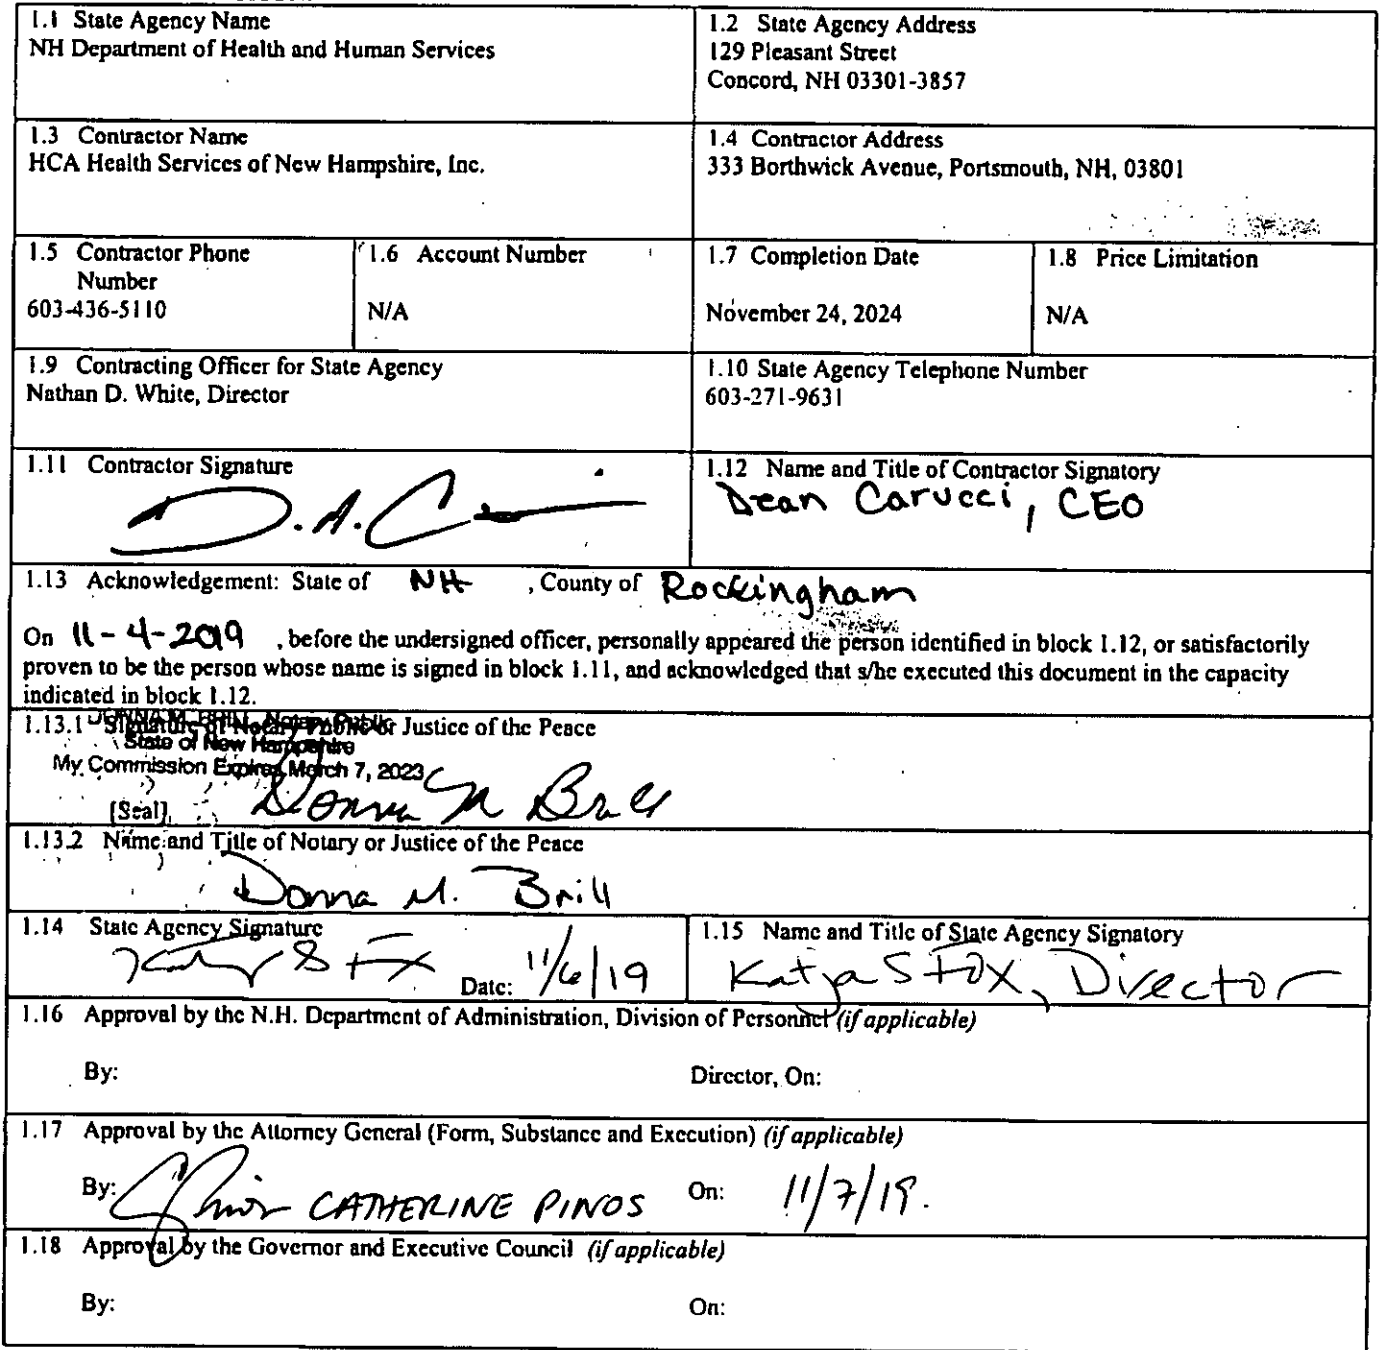 1.1 State Agency Name
NH Department of Health and Human Services
1.2 State Agency Address
129 Pleasant Street
Concord, NH 03301-3857
1.3 Contractor Name
HCA Health Services of New Hampshire, Inc.
1.4 Contractor Address
333 Borthwick Avenue, Portsmouth, NH, 03801
1.5 Contractor Phone
Number
603-436-5110
1.6 Account Number
N/A
1.7 Completion Date
November 24, 2024
1.8 Price Limitation
N/A
1.9 Contracting Officer for State Agency
Nathan D. White, Director
1.10 State Agency Telephone Number
603-271-9631
1.11 Contractor Signature
D.A.C
1.12 Name and Title of Contractor Signatory
Dean Carucci, CEO
1.13 Acknowledgement: State of NH , County of Rockingham
On 11-4-2019 , before the undersigned officer, personally appeared the person identified in block 1.12, or satisfactorily
proven to be the person whose name is signed in block 1.11, and acknowledged that s/he executed this document in the capacity
indicated in block 1.12.
DONNA M. BRILL, Notary Public
1.13.1 Signature of Notary Public or Justice of the Peace
State of New Hampshire
My Commission Expires March 7, 2023
[Seal] Donna M Brill
1.13.2 Name and Title of Notary or Justice of the Peace
Donna M. Brill
1.14 State Agency Signature
Date: 11/6/19
1.15 Name and Title of State Agency Signatory
Katja S Fox, Director
1.16 Approval by the N.H. Department of Administration, Division of Personnel (if applicable)
By: Director, On:
1.17 Approval by the Attorney General (Form, Substance and Execution) (if applicable)
By: CATHERINE PINOS On: 11/7/19.
1.18 Approval by the Governor and Executive Council (if applicable)
By: On: